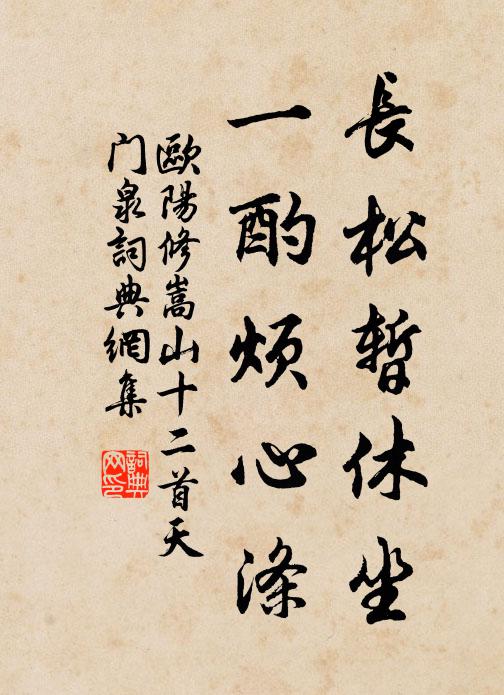 長松暫休坐
一酌煩心滌
歐陽修嵩山十二首天
门泉詞典網集
詞典
网印